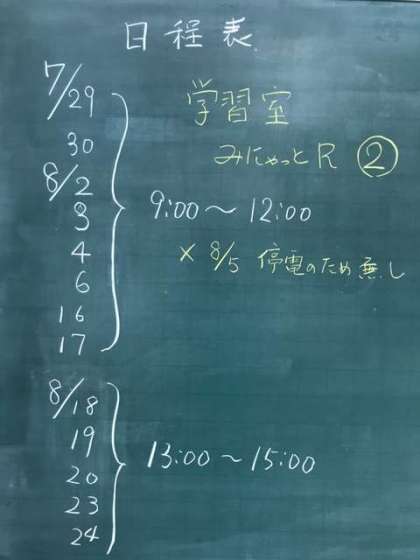 日程表
7/29
学習室
30
みにゃっとR ②
8/2
3
9:00～12:00
4
× 8/5 停電のため無し
6
16
17
8/18
19
13:00～15:00
20
23
24